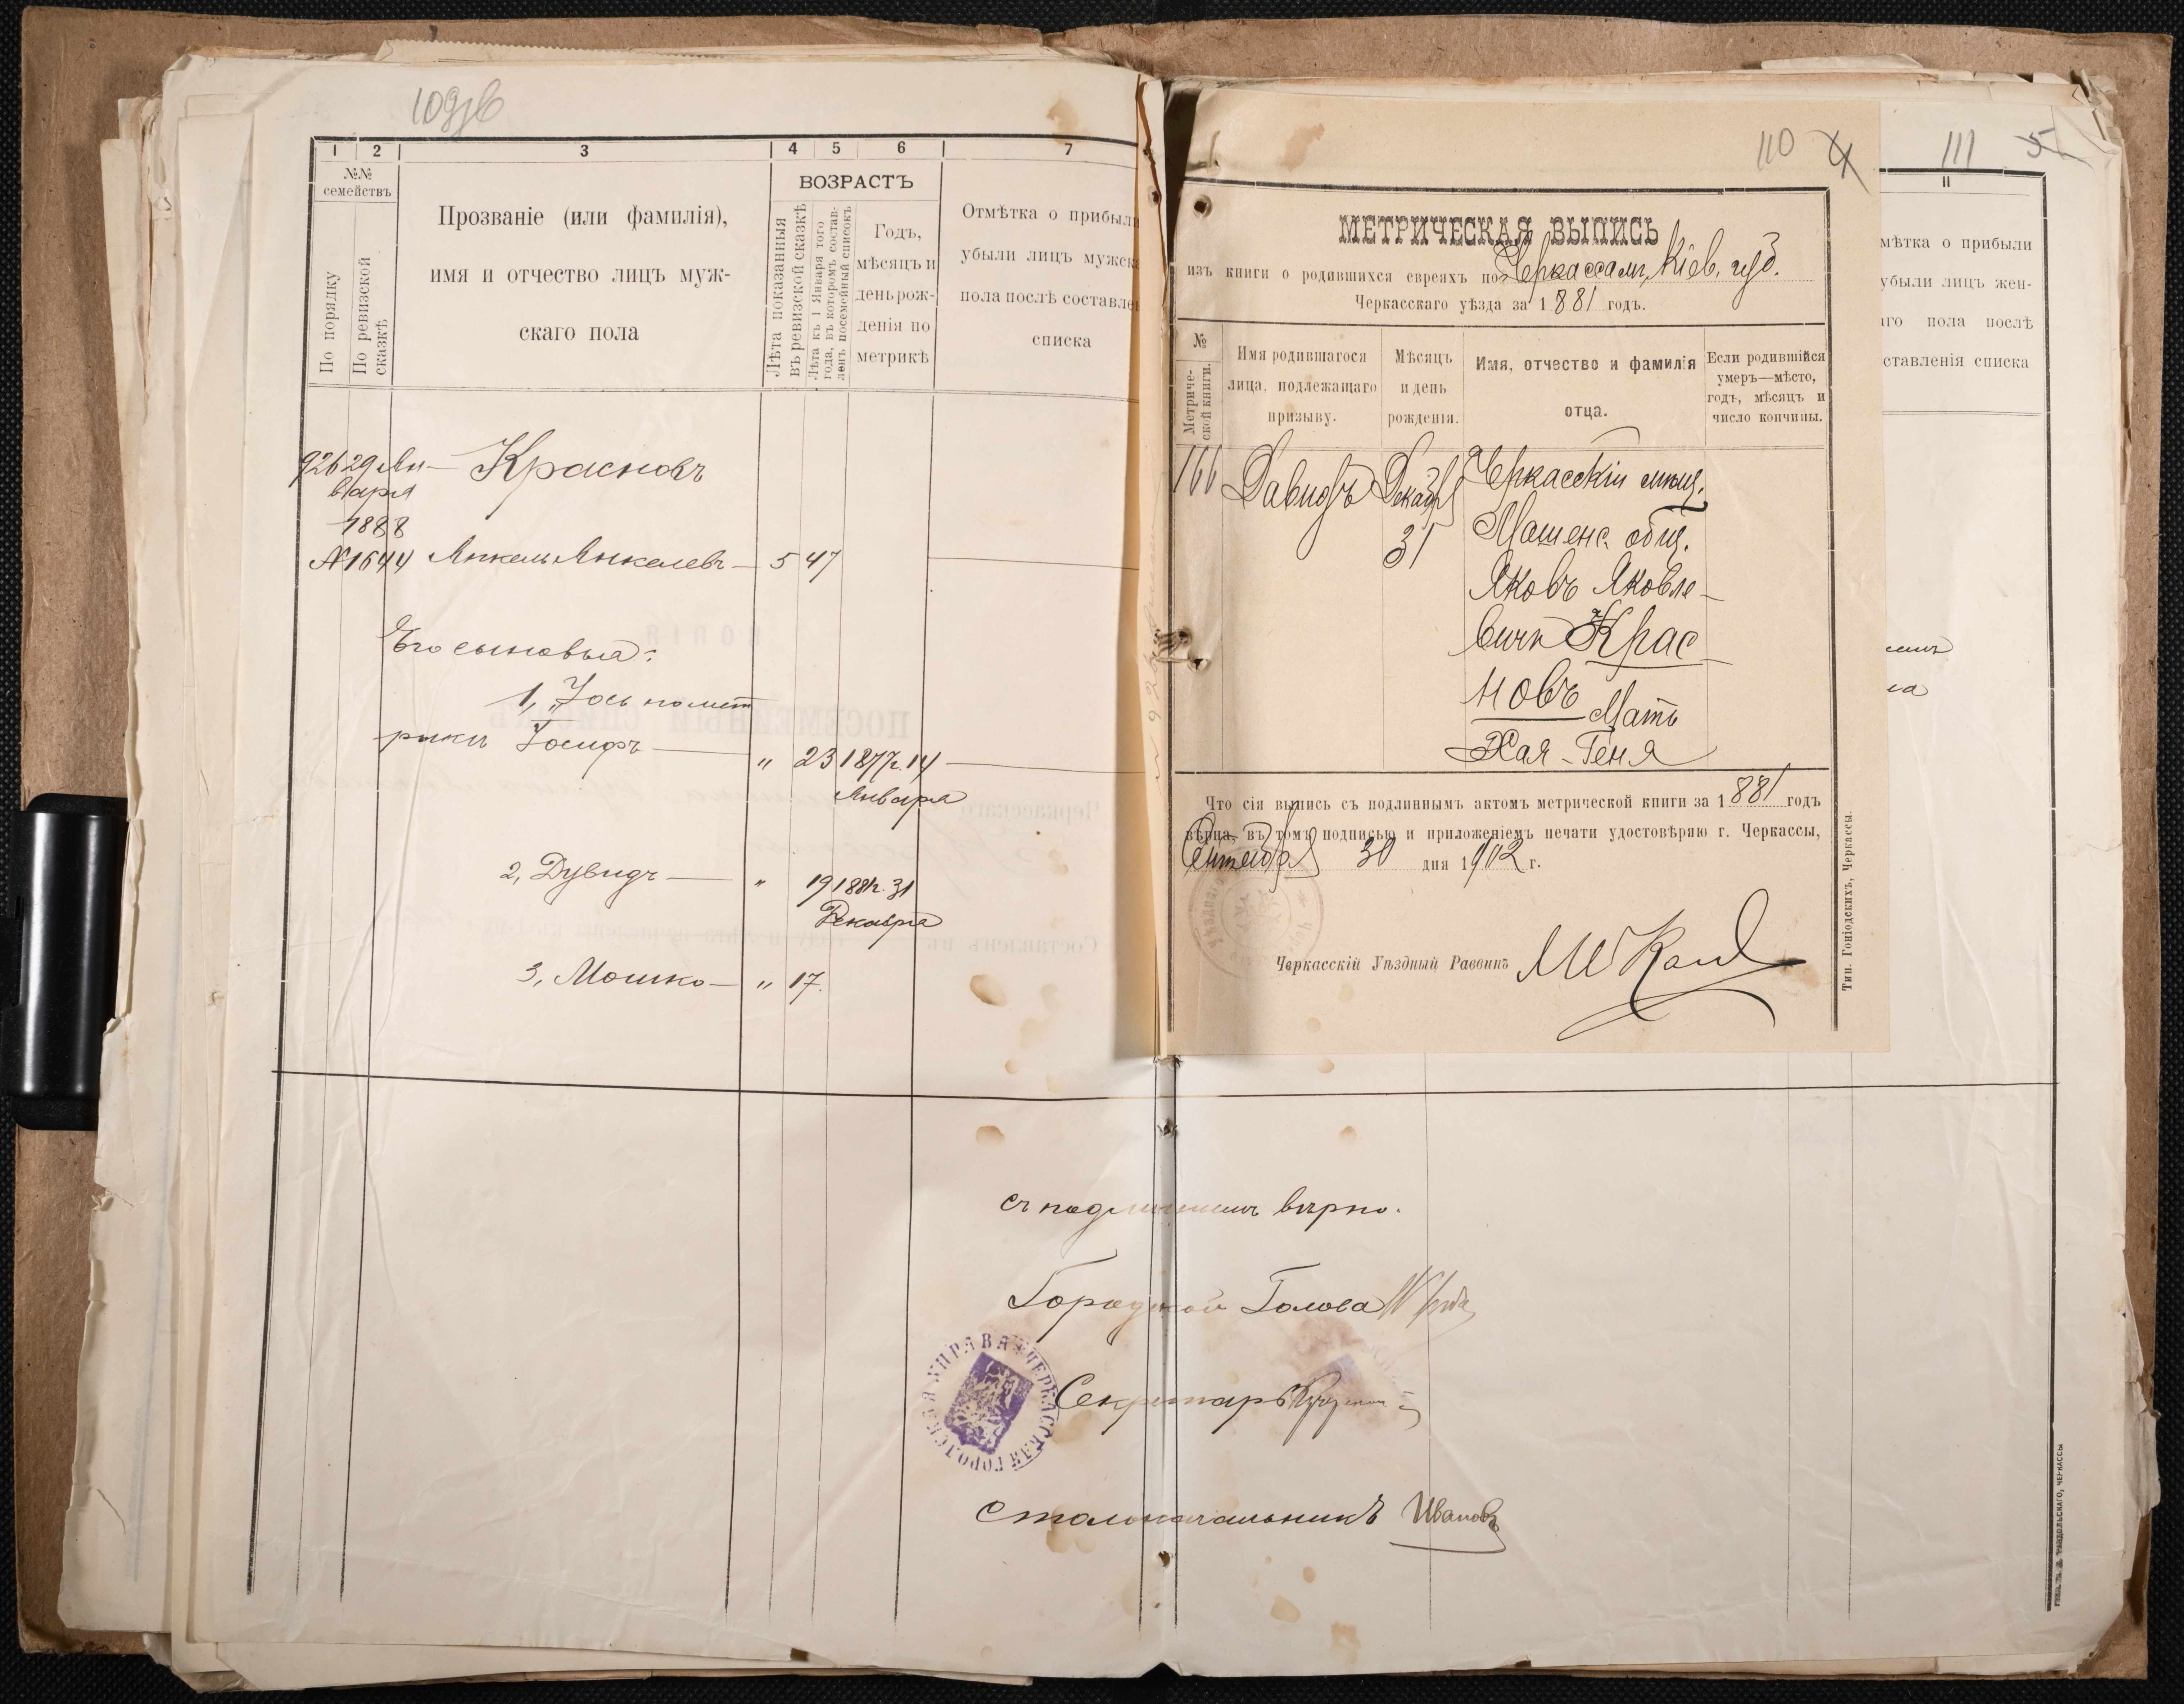 1
2
3
4
5
6
7
№№
семействъ
По порядку
По ревизской
сказкѣ
Прозваніе (или фамилія),
имя и отчество лицъ муж-
скаго пола
ВОЗРАСТЪ
Лѣта показанныя
въ ревизской сказкѣ
Лѣта къ 1 Января того
года, въ которомъ состав-
ленъ посемейный списокъ
Годъ,
мѣсяцъ и
день рож-
денія по
метрикѣ
Отмѣтка о прибыли
убыли лицъ мужска
пола послѣ составле
списка
926 29 Ян- Красновъ
варя
1888
№ 1644 Янкель Янкелевъ — 5 47
Его сыновья:
1, Іось по мет
рики Іосифъ — " 23 1877г. 14
Января
2, Дувидъ — " 19 1881г. 31
Декабря
3, Мошко — " 17.
110
МЕТРИЧЕСКАЯ ВЫПИСЬ
изъ книги о родившихся евреяхъ по Черкассамъ, Кіев. губ.
Черкасскаго уѣзда за 1881 годъ.
№
Метриче-
ской книги.
Имя родившагося
лица, подлежащаго
призыву.
Мѣсяцъ
и день
рожденія.
Имя, отчество и фамилія
отца.
Если родившійся
умеръ—мѣсто,
годъ, мѣсяцъ и
число кончины.
166 Давидъ Декабр 31
Черкасскій мѣщ.
Машенс. общ.
Яковъ Яковле-
вичъ Крас
новъ Мать
Хая-Геня
Что сія выпись съ подлиннымъ актомъ метрической книги за 1881 годъ
вѣрна въ томъ подписью и приложеніемъ печати удостовѣряю г. Черкассы,
Сентебря 30 дня 1902 г.
Черкасскій Уѣздный Раввинъ
Тип. Гоніодскихъ, Черкассы.
111
5
11
мѣтка о прибыли
убыли лицъ жен-
аго пола послѣ
ставленія списка
съ подлиннымъ вѣрно.
Городской Голова
Секретарь
Столоначальникъ Ивановъ
ЧЕРКАССКАЯ ГОРОДСКАЯ УПРАВА